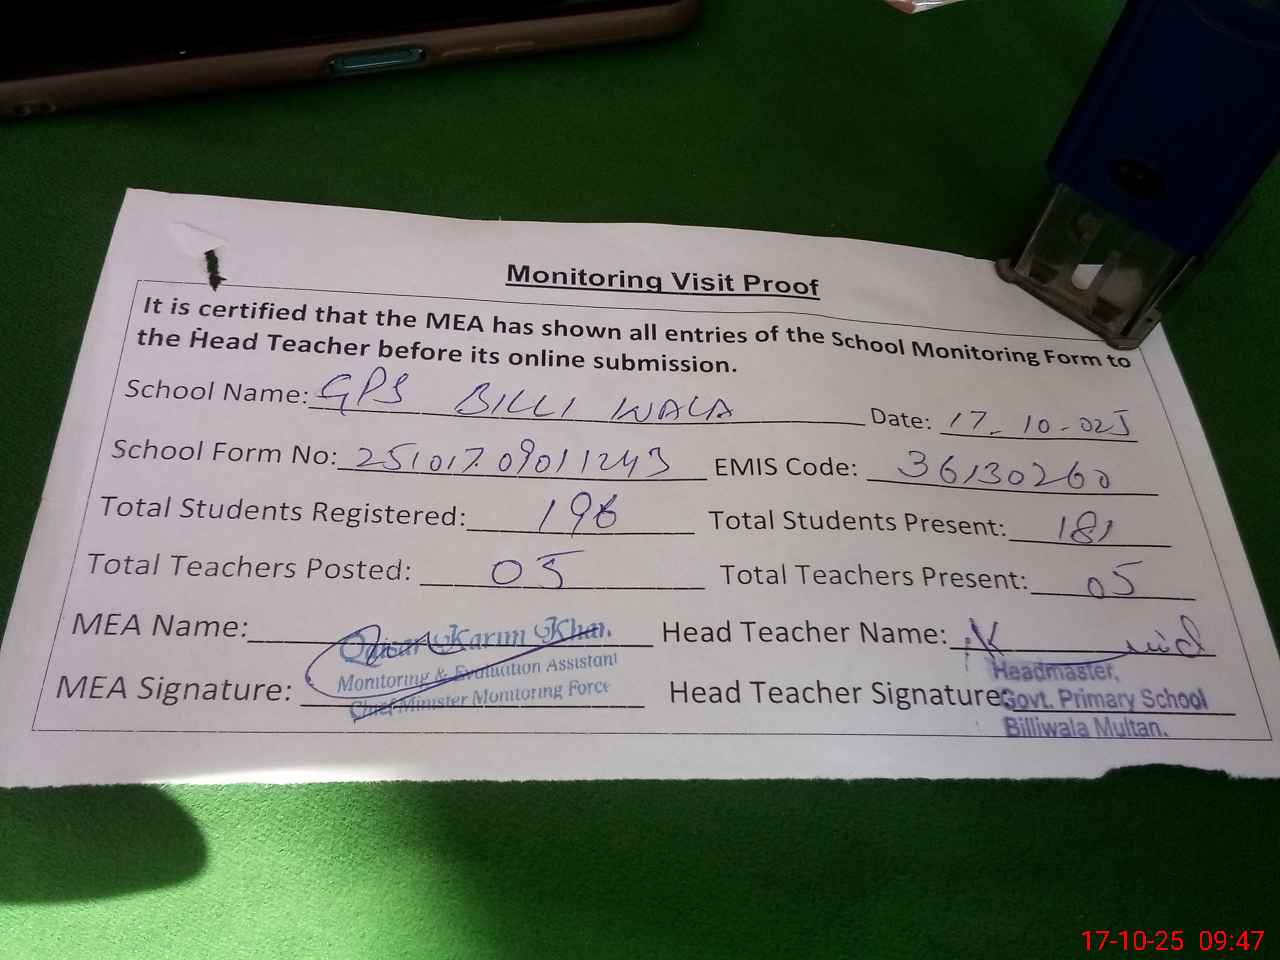 Monitoring Visit Proof
It is certified that the MEA has shown all entries of the School Monitoring Form to
the Head Teacher before its online submission.
School Name: GPS BILLI WALA Date: 17-10-025
School Form No: 25101709011243 EMIS Code: 36130260
Total Students Registered: 196 Total Students Present: 181
Total Teachers Posted: 05 Total Teachers Present: 05
MEA Name: Karim Khan Head Teacher Name:
Monitoring & Evaluation Assistant Headmaster,
MEA Signature: Chief Minister Monitoring Force Head Teacher Signature: Govt. Primary School
Billiwala Multan.
17-10-25 09:47